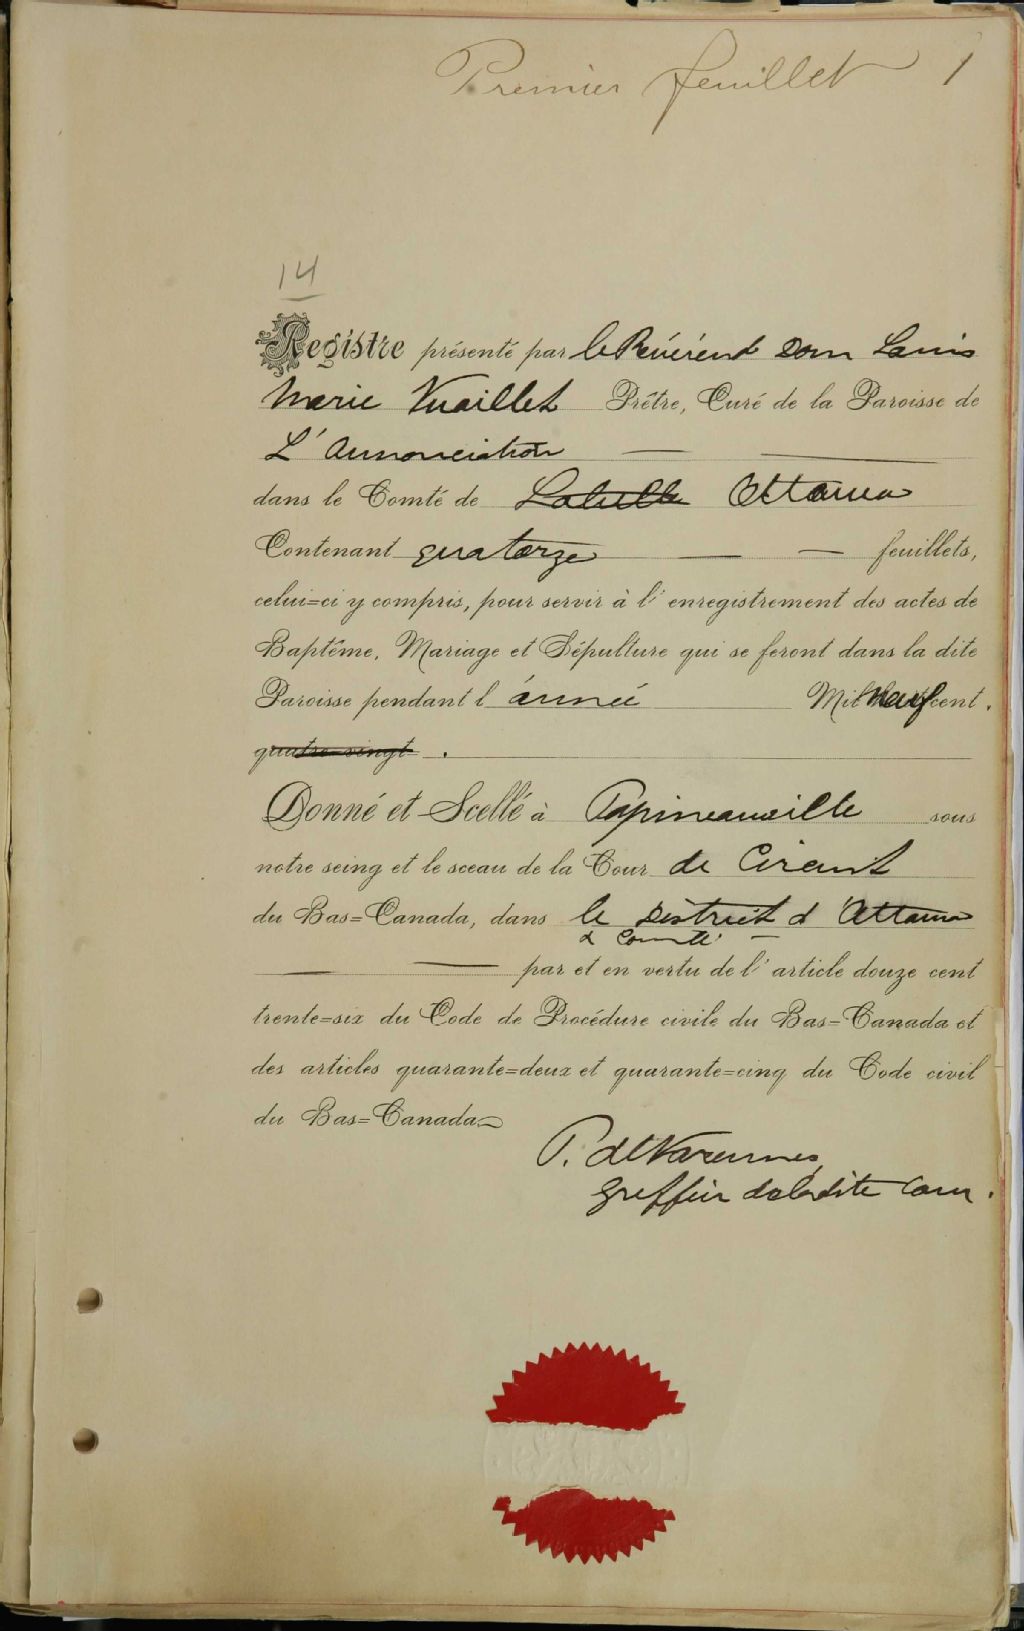 Premier feuillet 1
14
Registre présenté par le Révérend Dom Louis
Marie Vuaillet Prêtre, Curé de la Paroisse de
L'Annonciation
dans le Comté de Labelle Ottawa
Contenant quatorze feuillets,
celui=ci y compris, pour servir à l'enregistrement des actes de
Baptême, Mariage et Sépulture qui se feront dans la dite
Paroisse pendant l'année Mil neuf cent.
quatre-vingt.
Donné et Scellé à Papineauville sous
notre seing et le sceau de la Cour de Circuit
du Bas=Canada, dans le District d'Ottawa
& Comté
par et en vertu de l'article douze cent
trente=six du Code de Procédure civile du Bas=Canada et
des articles quarante=deux et quarante=cinq du Code civil
du Bas=Canada
P. deVarennes
greffier de la dite Cour.